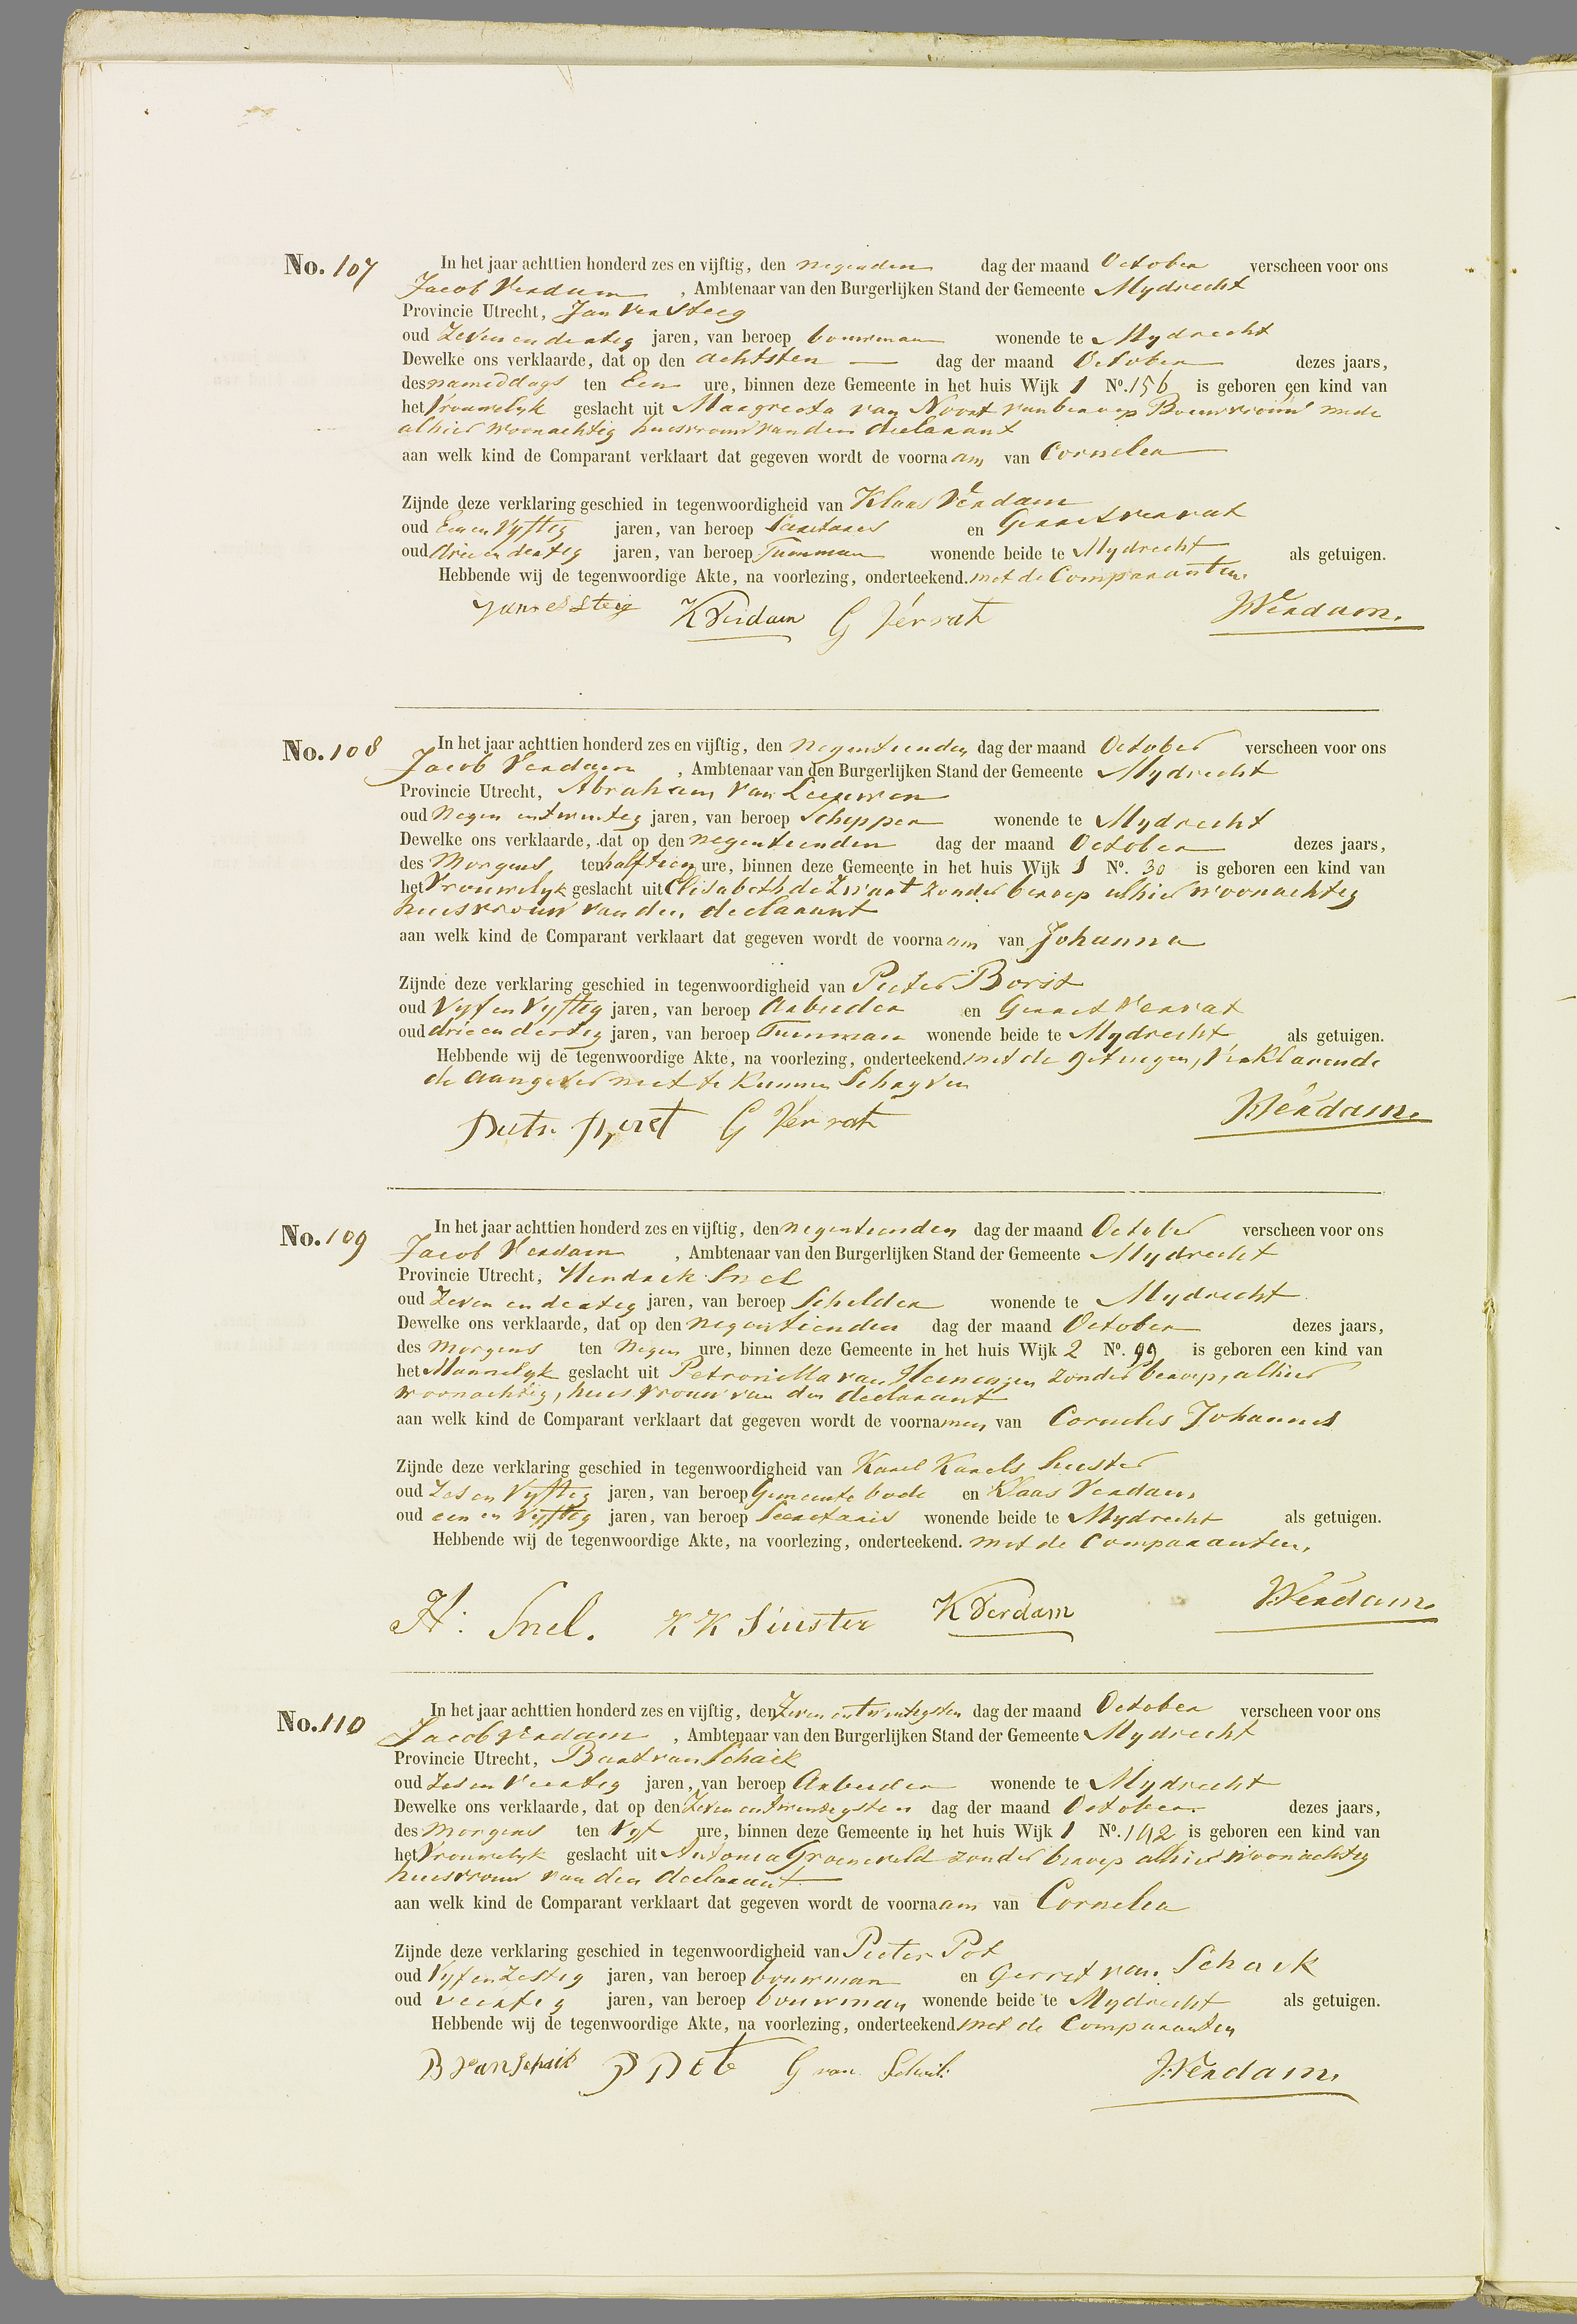 No. 107
In het jaar achttien honderd zes en vijftig, den negenden dag der maand October verscheen voor ons
Jacob Verdam, Ambtenaar van den Burgerlijken Stand der Gemeente Mydrecht
Provincie Utrecht, Jan Versteeg
oud Zeven en dertig jaren, van beroep bouwman wonende te Mydrecht
Dewelke ons verklaarde, dat op den achtsten — dag der maand October dezes jaars,
des namiddags ten Een ure, binnen deze Gemeente in het huis Wijk 1 No. 156 is geboren een kind van
het Vrouwelyk geslacht uit Margreeta van Noort van beroep Bouwvrouw mede
alhier woonachtig huisvrouw van den declarant
aan welk kind de Comparant verklaart dat gegeven wordt de voornaam van Cornelia
Zijnde deze verklaring geschied in tegenwoordigheid van Klaas Verdam
oud Een en Vyftig jaren, van beroep Secretaris en Gerret Verrat
oud drie en dertig jaren, van beroep Tuinman wonende beide te Mydrecht als getuigen.
Hebbende wij de tegenwoordige Akte, na voorlezing, onderteekend. met de Comparanten.
K Verdam G Verrat JVerdam.
No. 108
In het jaar achttien honderd zes en vijftig, den negentienden dag der maand October verscheen voor ons
Jacob Verdam, Ambtenaar van den Burgerlijken Stand der Gemeente Mydrecht
Provincie Utrecht, Abraham van Leeuwen
oud Negen en twintig jaren, van beroep Schipper wonende te Mydrecht
Dewelke ons verklaarde, dat op den negentienden dag der maand October dezes jaars,
des Morgens ten half tien ure, binnen deze Gemeente in het huis Wijk 1 No. 30 is geboren een kind van
het Vrouwelyk geslacht uit Elisabeth de Zwart zonder beroep alhier woonachtig
huisvrouw van den declarant
aan welk kind de Comparant verklaart dat gegeven wordt de voornaam van Johanna
Zijnde deze verklaring geschied in tegenwoordigheid van Pieter Borst
oud Vyf en Vyftig jaren, van beroep Arbeider en Gerret Verrat
oud drie en dertig jaren, van beroep Tuinman wonende beide te Mydrecht als getuigen.
Hebbende wij de tegenwoordige Akte, na voorlezing, onderteekend met de getuigen, Verklarende
de aangever niet te kunnen Schryven
G Verrat JVerdam.
No. 109
In het jaar achttien honderd zes en vijftig, den negentienden dag der maand October verscheen voor ons
Jacob Verdam, Ambtenaar van den Burgerlijken Stand der Gemeente Mydrecht
Provincie Utrecht, Hendrik Snel
oud Zeven en dertig jaren, van beroep Schilder wonende te Mydrecht
Dewelke ons verklaarde, dat op den negentienden dag der maand October dezes jaars,
des Morgens ten Negen ure, binnen deze Gemeente in het huis Wijk 2 No. 99 is geboren een kind van
het Mannelyk geslacht uit Petronella van zonder beroep, alhier
woonachtig, huisvrouw van den declarant
aan welk kind de Comparant verklaart dat gegeven wordt de voornamen van Cornelis Johannes
Zijnde deze verklaring geschied in tegenwoordigheid van Karel Karels
oud Zes en Vyftig jaren, van beroep Gemeente bode en Klaas Verdam
oud een en Vyftig jaren, van beroep Secretaris wonende beide te Mydrecht als getuigen.
Hebbende wij de tegenwoordige Akte, na voorlezing, onderteekend. met de Comparanten.
H: Snel. K K K Verdam JVerdam.
No. 110
In het jaar achttien honderd zes en vijftig, den Zeven en twintigsten dag der maand October verscheen voor ons
Jacob Verdam, Ambtenaar van den Burgerlijken Stand der Gemeente Mydrecht
Provincie Utrecht, Bart van Schaik
oud Zes en Veertig jaren, van beroep Arbeider wonende te Mydrecht
Dewelke ons verklaarde, dat op den Zeven en twintigsten dag der maand October dezes jaars,
des Morgens ten Vyf ure, binnen deze Gemeente in het huis Wijk 1 No. 142 is geboren een kind van
het Vrouwelyk geslacht uit Antonia Groeneveld zonder beroep alhier woonachtig
huisvrouw van den declarant
aan welk kind de Comparant verklaart dat gegeven wordt de voornaam van Cornelia
Zijnde deze verklaring geschied in tegenwoordigheid van Pieter Pot
oud Vyf en Zestig jaren, van beroep bouwman en Gerret van Schaik
oud veertig jaren, van beroep bouwman wonende beide te Mydrecht als getuigen.
Hebbende wij de tegenwoordige Akte, na voorlezing, onderteekend met de Comparanten
B van Schaik P Pot G van Schaik JVerdam.